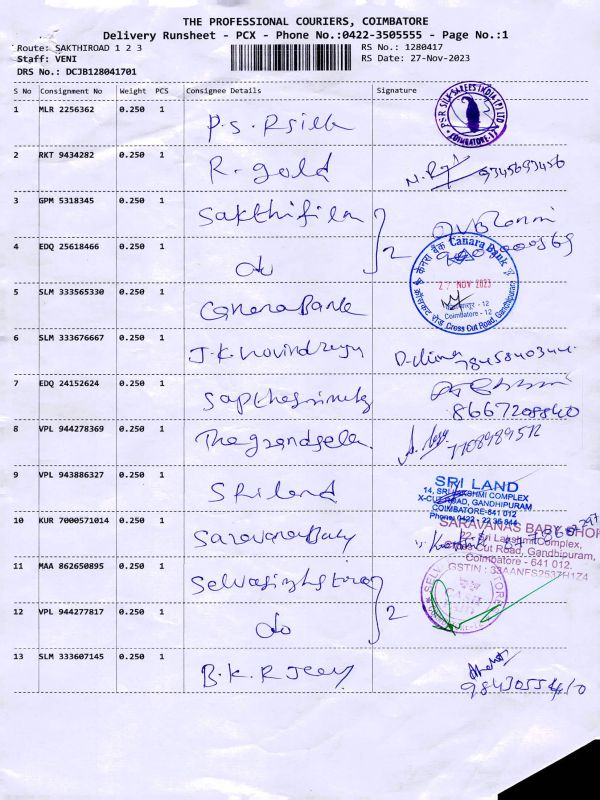 THE PROFESSIONAL COURIERS, COIMBATORE
Delivery Runsheet - PCX - Phone No.:0422-3505555 - Page No.:1
Route: SAKTHIROAD 1 2 3 RS No.: 1280417
Staff: VENI RS Date: 27-Nov-2023
DRS No.: DCJB128041701
S No Consignment No Weight PCS Consignee Details Signature
1 MLR 2256362 0.250 1 P.S. R silk
2 RKT 9434282 0.250 1 R. gold 9345693456
3 GPM 5318345 0.250 1 Sakthifila
2
4 EDQ 25618466 0.250 1 do
केनरा बैंक Canara Bank
27 NOV 2023
Coimbatore - 12
Cross Cut Road, Gandhipuram
5 SLM 333565330 0.250 1 Canara Bank
6 SLM 333676667 0.250 1 J.K.
7 EDQ 24152624 0.250 1
8667208840
8 VPL 944278369 0.250 1 Thegrandsela
9 VPL 943886327 0.250 1 Sriland
SRI LAND
14, SRI LAKSHMI COMPLEX
X-CUT ROAD, GANDHIPURAM
COIMBATORE-641 012
10 KUR 7000571014 0.250 1 Saravana Baby
SARAVANAS BABY SHOP
22, Sri Lakshmi Complex,
Cross Cut Road, Gandhipuram,
Coimbatore - 641 012.
GSTIN : 33AANFS2537H1Z4
11 MAA 862650895 0.250 1
2
12 VPL 944277817 0.250 1 do
13 SLM 333607145 0.250 1 B.K.R